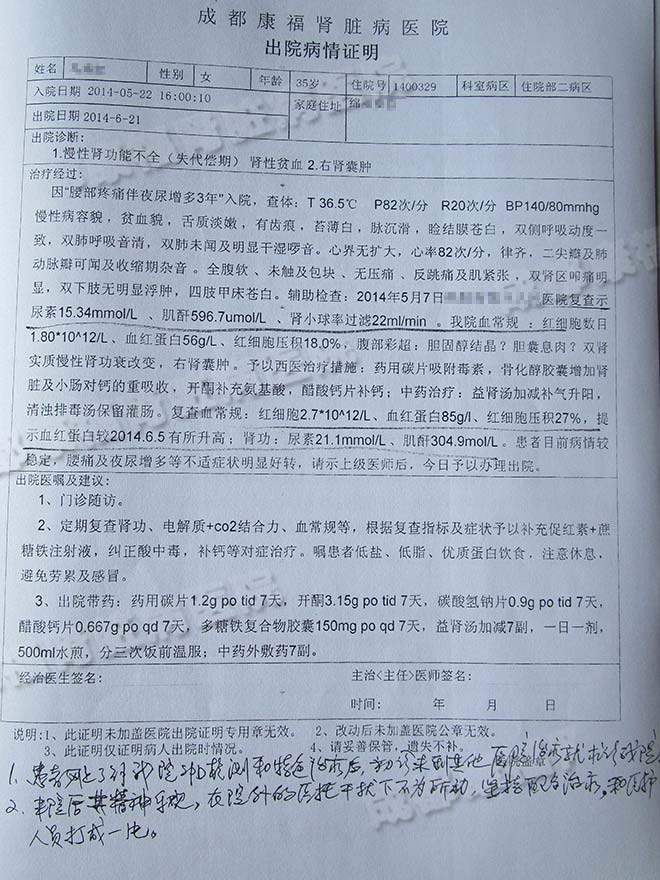 成都康福肾脏病医院
出院病情证明
姓名 性别 女 年龄 35岁 住院号 1400329 科室病区 住院部二病区
入院日期 2014-05-22 16:00:10 家庭住址 绵
出院日期 2014-6-21
出院诊断:
1.慢性肾功能不全（失代偿期） 肾性贫血 2.右肾囊肿
治疗经过:
因"腰部疼痛伴夜尿增多3年"入院，查体：T 36.5℃ P82次/分 R20次/分 BP140/80mmhg
慢性病容貌，贫血貌，舌质淡嫩，有齿痕，苔薄白，脉沉滑，睑结膜苍白，双侧呼吸动度一
致，双肺呼吸音清，双肺未闻及明显干湿啰音。心界无扩大，心率82次/分，律齐，二尖瓣及肺
动脉瓣可闻及收缩期杂音。全腹软、未触及包块、无压痛、反跳痛及肌紧张，双肾区叩痛明
显，双下肢无明显浮肿，四肢甲床苍白。辅助检查：2014年5月7日 医院复查示
尿素15.34mmol/L 、肌酐596.7umol/L 、肾小球率过滤22ml/min 。我院血常规：红细胞数目
1.80*10^12/L、血红蛋白56g/L、红细胞压积18.0%，腹部彩超：胆固醇结晶？胆囊息肉？双肾
实质慢性肾功衰改变，右肾囊肿。予以西医治疗措施：药用碳片吸附毒素，骨化醇胶囊增加肾
脏及小肠对钙的重吸收，开酮补充氨基酸，醋酸钙片补钙；中药治疗：益肾汤加减补气升阳，
清浊排毒汤保留灌肠。复查血常规：红细胞2.7*10^12/L、血红蛋白85g/l、红细胞压积27%，提
示血红蛋白较2014.6.5有所升高；肾功：尿素21.1mmol/L、肌酐304.9mol/L。患者目前病情较
稳定，腰痛及夜尿增多等不适症状明显好转，请示上级医师后，今日予以办理出院。
出院医嘱及建议:
1、门诊随访。
2、定期复查肾功、电解质+co2结合力、血常规等，根据复查指标及症状予以补充促红素+蔗
糖铁注射液，纠正酸中毒，补钙等对症治疗。嘱患者低盐、低脂、优质蛋白饮食，注意休息，
避免劳累及感冒。
3、出院带药：药用碳片1.2g po tid 7天，开酮3.15g po tid 7天，碳酸氢钠片0.9g po tid 7天，
醋酸钙片0.667g po qd 7天，多糖铁复合物胶囊150mg po qd 7天，益肾汤加减7副，一日一剂，
500ml水煎，分三次饭前温服；中药外敷药7副。
经治医生签名: 主治<主任>医师签名:
时间: 年 月 日
说明：1、此证明未加盖医院出院证明专用章无效。 2、改动后未加盖医院公章无效。
3、此证明仅证明病人出院时情况。 4、请妥善保管，遗失不补。
1、患者网上了解我院 检测和特色治疗后，初诊未到其他医院治疗就 我院
2、来院后 精神 ，在院外的医托干扰下不为所动，坚持配合治疗，和医护
人员打成一片。